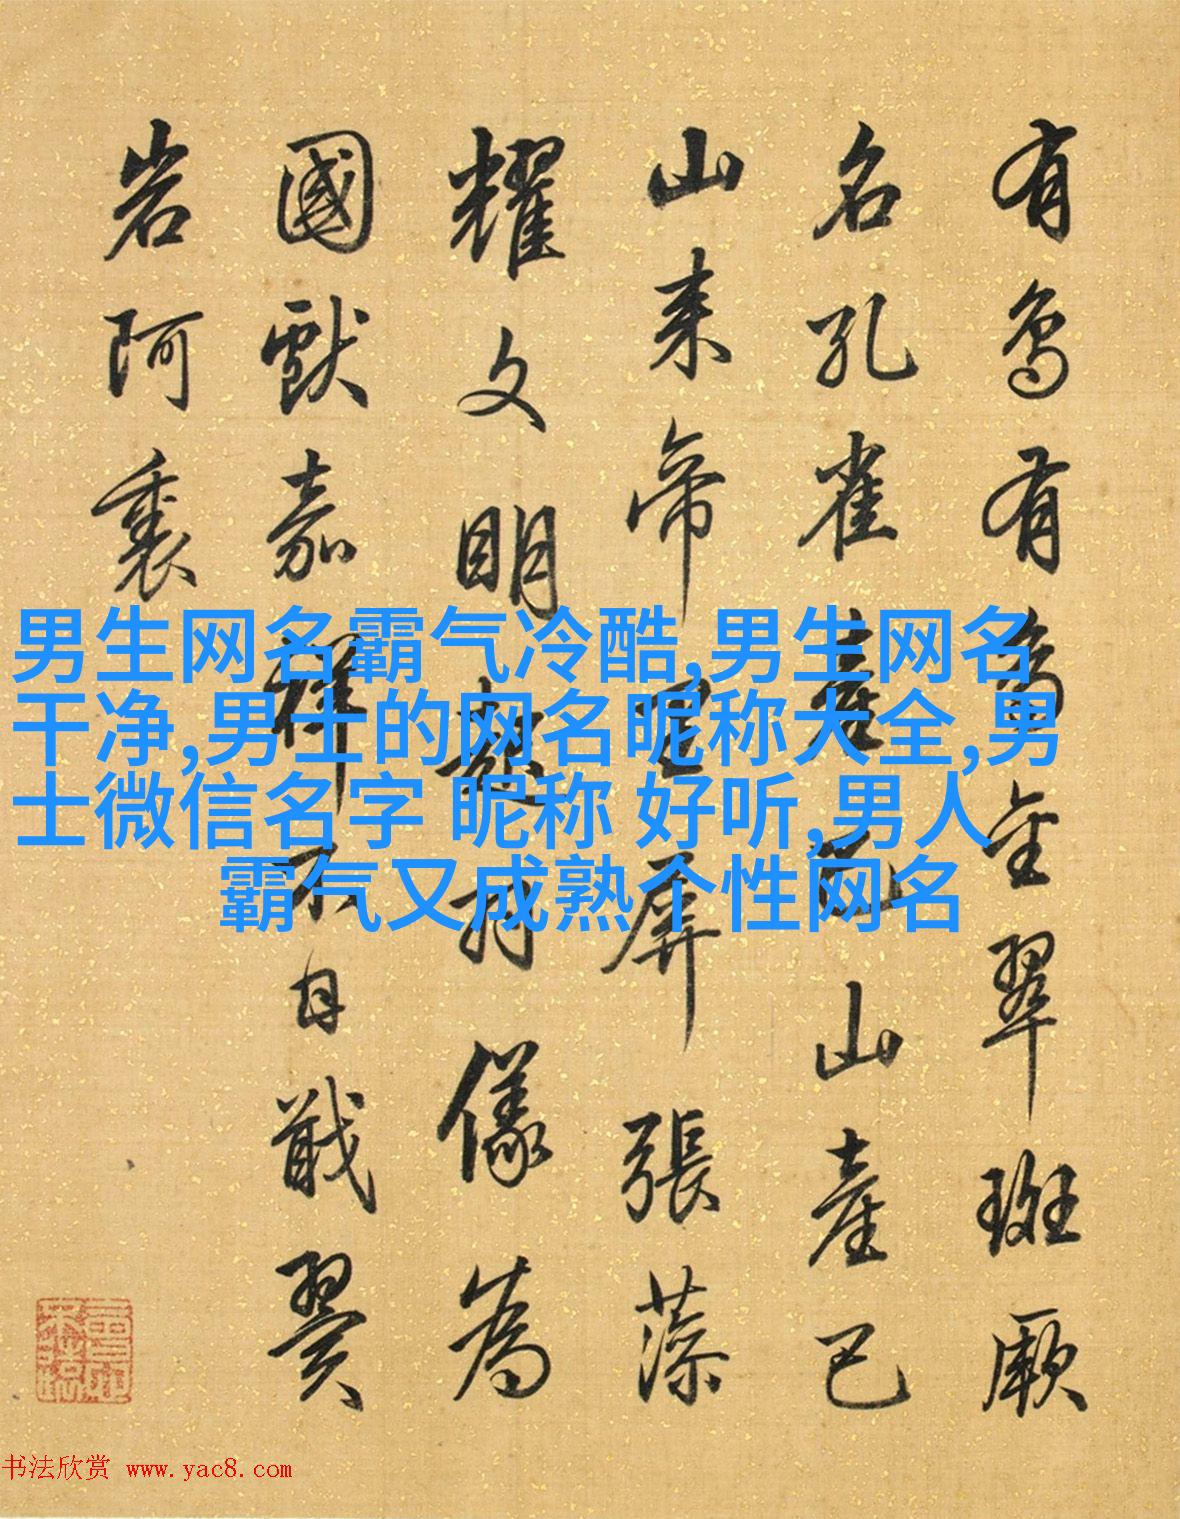 有鳥有鳥金翠斑厥
名孔雀產巴山產巴
山来帝里屏張藻
耀文明羽儀為
國獻嘉祥不自戢翼
岩阿裏
男生网名霸气冷酷,男生网名
干净,男士的网名昵称大全,男
士微信名字 昵称 好听,男人
霸气又成熟个性网名
书法欣赏 www.yac8.com